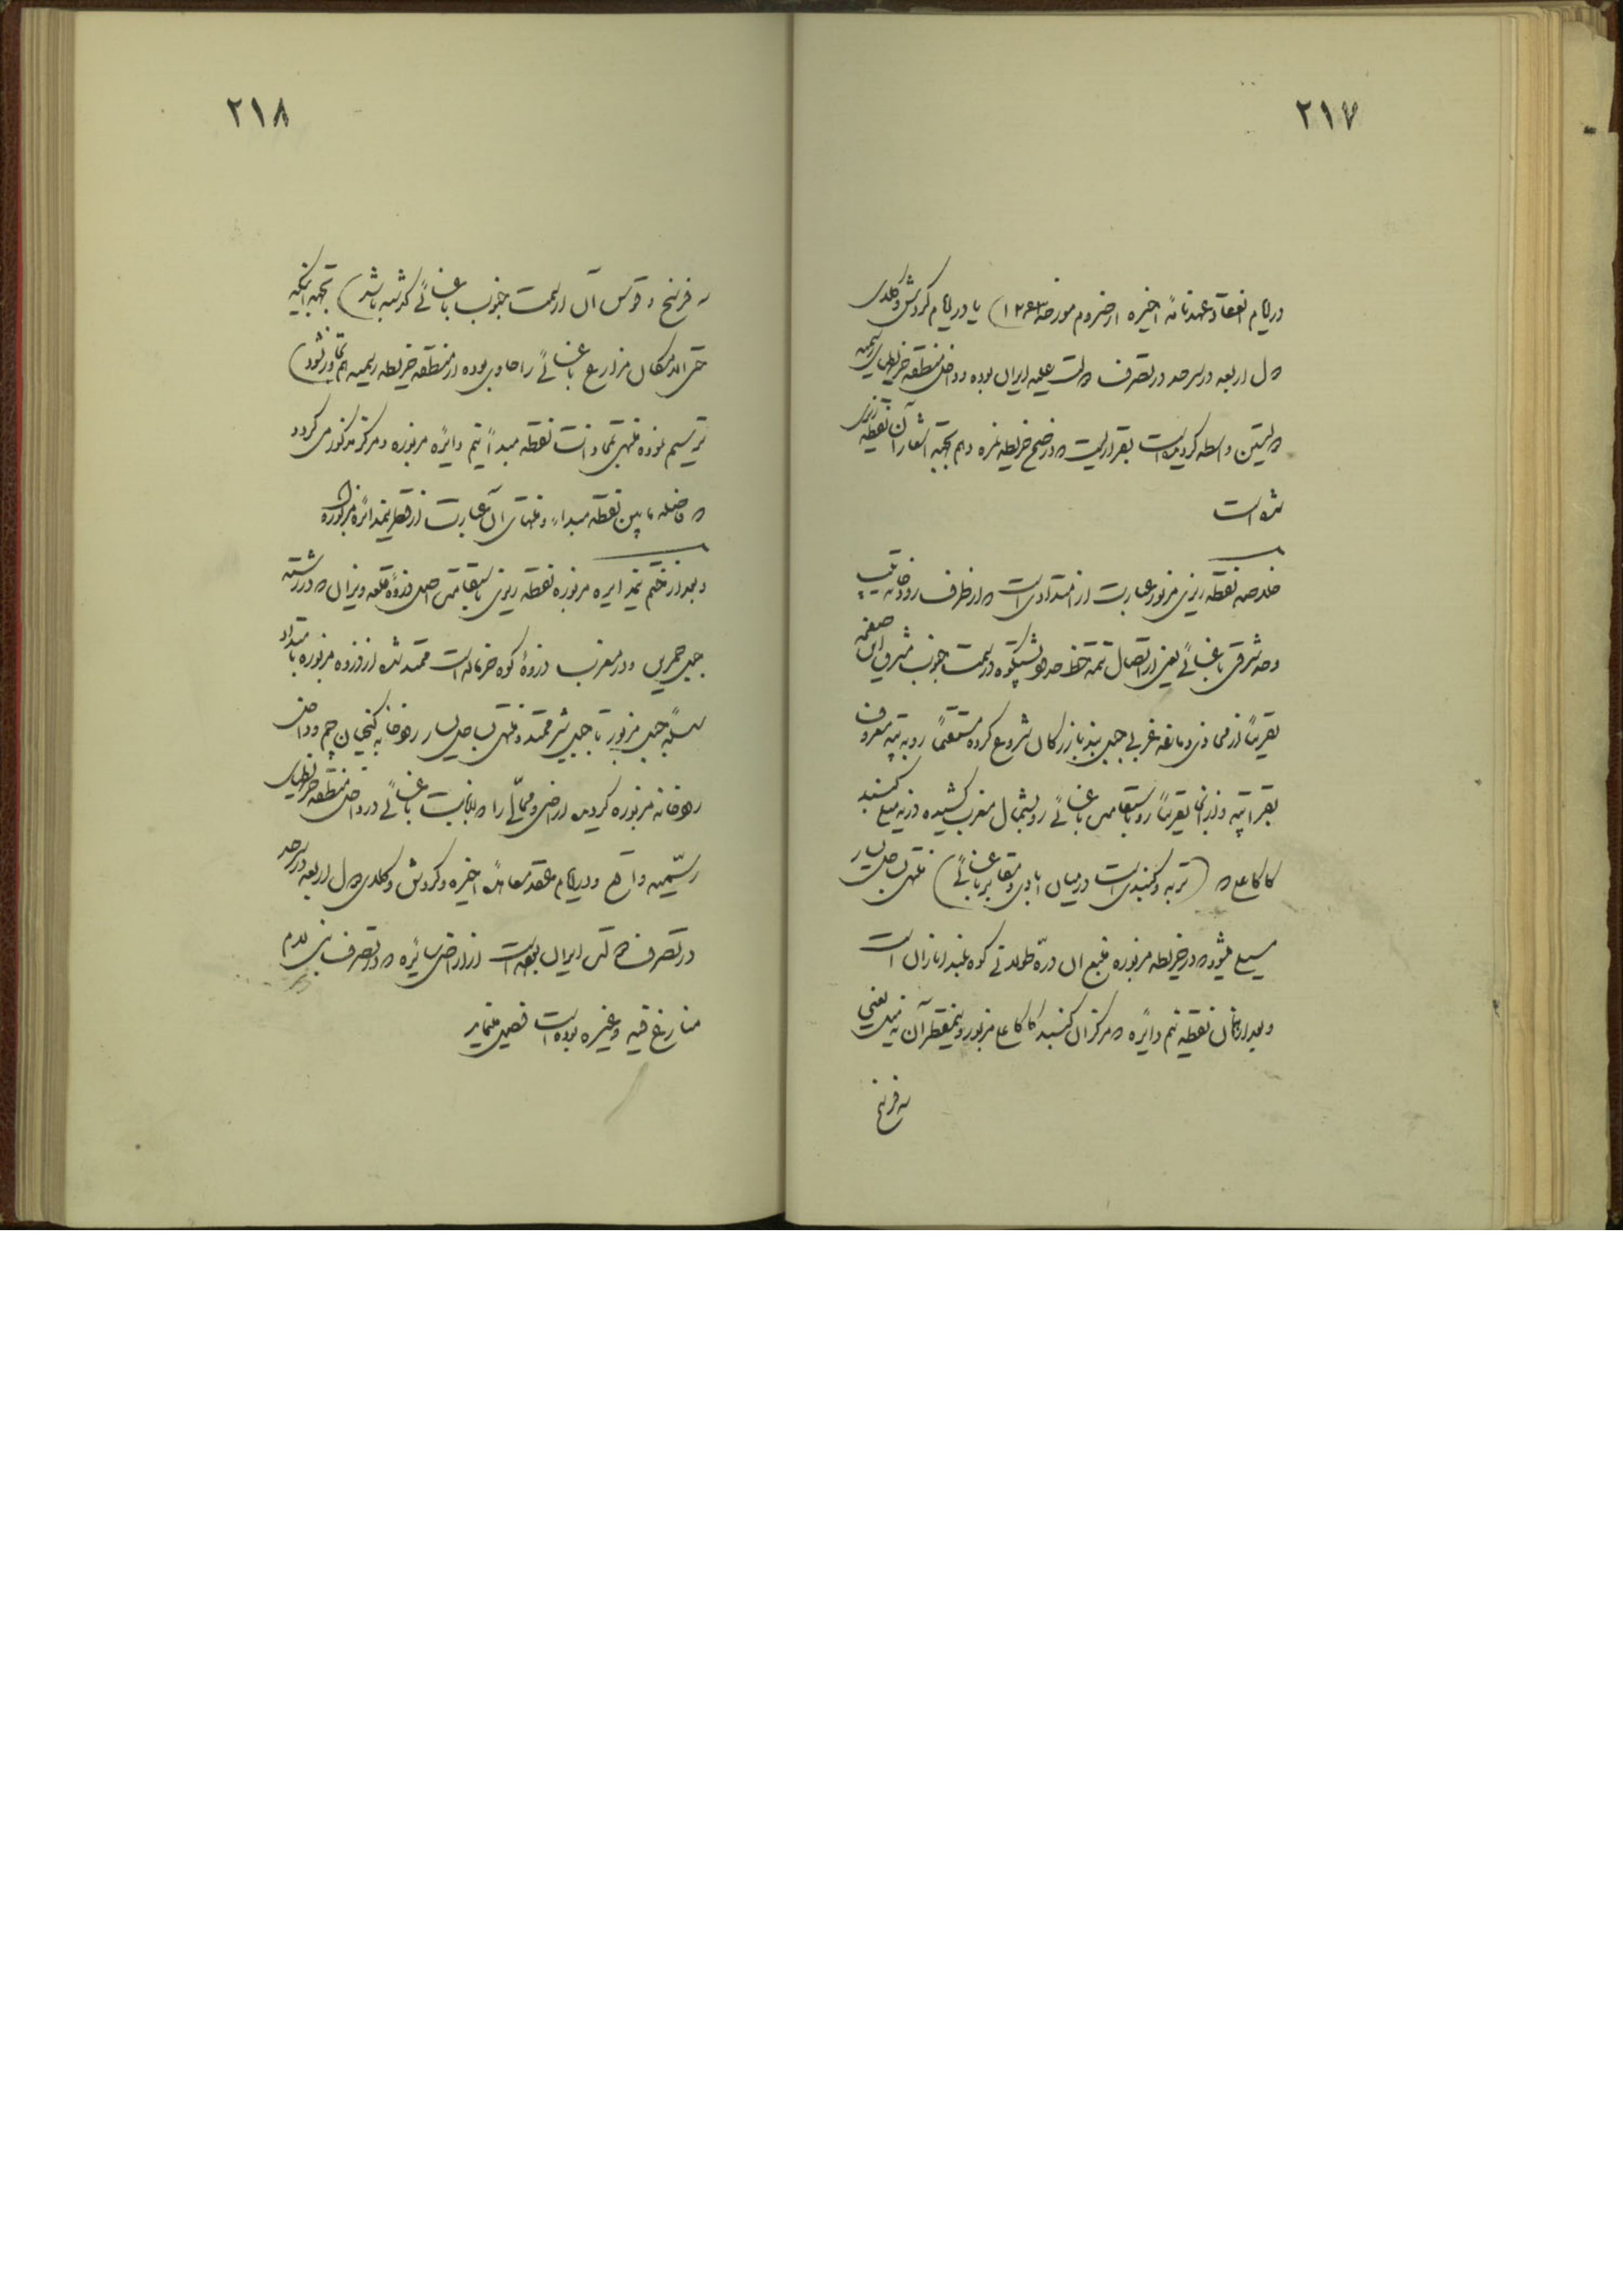 ۲۱۷
در ایام انعقاد عهدنامهٔ اخیره ارضروم مورخه ۱۲۶۳) یا در ایام گردش وکلای
دول اربعه در سرحد در تصرف دولت علیه ایران بوده و داخل منطقه خریطهای رسمیه
دولتین واسطه گردیده است بقراریست که در ضمیمه خریطه نمره دهم بجهة اشعار آن نقطه ریزی
شده است
خلاصه نقطه ریزی مزبور عبارت از امتدادی است که از طرف رودخانه
و حد شرقی باغسائی یعنی از اتصال تتمه خط حدود پشتکوه در سمت جنوب شرقی این صفحه
تقریباً از محاذی دماغه غربی جبل بند بازرگان شروع کرده مستقیماً رو به تپه معروف
بقرا تپه و از آنجا تقریباً رو باستقامت باغسائی رو بشمال مغرب کشیده در نه میلی گنبد
کاکاعلی که (تربه و گنبدی است در میان آبادی و مقابر باغسائی) منتهی بساحل یسار
مسیل میشود که در خریطه مزبوره منبع آن درّه طولانی کوه بلند اناران است
و بعد از همان نقطه نیم دایره که مرکز آن گنبد کاکاعلی مزبور و نیمقطر آن نه میل یعنی
سه فرسخ
۲۱۸
سه فرسخ و قوس آن از سمت جنوب باغسائی گذشته باشد) بجهة اینکه
حتی الامکان مزارع باغسائی را حاوی بوده از منطقه خریطه رسمیه هم تجاوز نشود)
ترسیم نموده منتهی بمحاذات نقطه مبدأ نیم دایره مزبوره و مرکز مذکور می گردد
که فاصله مابین نقطه مبداء و منتهای آن عبارت از قطر نیمدائره مزبوره
و بعد از ختم نیمدایره مزبوره نقطه ریزی باستقامت اصل ذروهٔ قلعه ویزان که در رشته
جبل حمرین و در مغرب ذروهٔ کوه خرماله است ممتد شده از ذروه مزبوره بامتداد
سلسلهٔ جبل مزبور تا جبل شر ممتد و منتهی بساحل یسار رودخانه کنجان چم و داخل
رودخانه مزبوره گردیده اراضی و محالی را که بنابت باغسائی در داخل منطقه خریطهای
رسمیه واقع و در ایام عقد معاهدهٔ اخیره و گردش وکلای دول اربعه در سرحد
در تصرف دولت ایران بوده است از اراضی سائره که در تصرف بنی لام
منازع فیه و غیره بوده است فصل مینماید